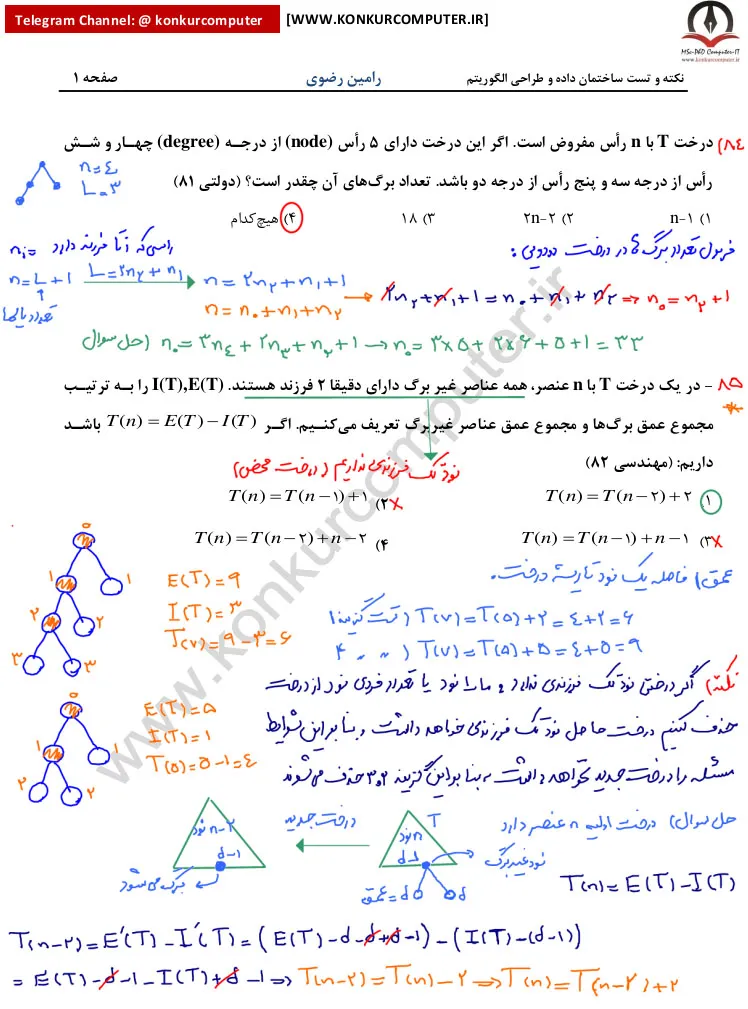 Telegram Channel: @ konkurcomputer [WWW.KONKURCOMPUTER.IR]
MSc-PhD Computer-IT
www.konkurcomputer.ir
نکته و تست ساختمان داده و طراحی الگوریتم رامین رضوی صفحه ۱
۸۴) درخت T با n رأس مفروض است. اگر این درخت دارای ۵ رأس (node) از درجــه (degree) چهــار و شــش
رأس از درجه سه و پنج رأس از درجه دو باشد. تعداد برگ‌های آن چقدر است؟ (دولتی ۸۱)
n=۴
L=۳
۱) n-۱ ۲) ۲n-۲ ۳) ۱۸ ۴) هیچ‌کدام
فرمول تعداد برگ ها در درخت دودویی:
nᵢ= راسی که i تا فرزند دارد
n=L+۱ L=۲n₂+n₁ n=۲n₂+n₁+۱
تعداد یالها
n=n₀+n₁+n₂ → ۲n₂+n₁+۱=n₀+n₁+n₂ ⇒ n₀=n₂+۱
حل سوال) n₀=۳n₄+۲n₃+n₂+۱ → n₀=۳×۵+۲×۶+۵+۱=۳۳
۸۵ - در یک درخت T با n عنصر، همه عناصر غیر برگ دارای دقیقا ۲ فرزند هستند. I(T),E(T) را بــه ترتیــب
مجموع عمق برگ‌ها و مجموع عمق عناصر غیربرگ تعریف می‌کنــیم. اگــر T(n) = E(T) − I(T) باشــد
داریم: (مهندسی ۸۲)
نود تک فرزندی نداریم (درخت محض)
۱) T(n) = T(n−۲)+۲ ۲) T(n) = T(n−۱)+۱
۳) T(n) = T(n−۱)+n−۱ ۴) T(n) = T(n−۲)+n−۲
عمق) فاصله یک نود تا ریشه درخت.
E(T)=۹
I(T)=۳
T(۷)=۹-۳=۶
تست گزینه ۱) T(۷)=T(۵)+۲=۴+۲=۶
۴ " ") T(۷)=T(۵)+۵=۴+۵=۹
نکته) اگر درختی نود تک فرزندی ندارد و ما ۱ نود یا تعداد فردی نود از درخت
حذف کنیم درخت حاصل نود تک فرزندی خواهد داشت و بنابراین شرایط
مسئله را درخت جدید نخواهد داشت بنابراین گزینه ۲و۳ حذف می شوند
E(T)=۵
I(T)=۱
T(۵)=۵-۱=۴
حل سوال) درخت اولیه n عنصر دارد
T
n نود
d-۱
نود غیر برگ
عمق=d d
درخت جدید
n-۲ نود
d-۱
برگ می شود
T(n)=E(T)-I(T)
T(n-۲)=E'(T)-I'(T)=(E(T)-d-d+d-۱)-(I(T)-(d-۱))
=E(T)-d-۱-I(T)+d-۱ ⇒ T(n-۲)=T(n)-۲ ⇒ T(n)=T(n-۲)+۲
www.konkurcomputer.ir